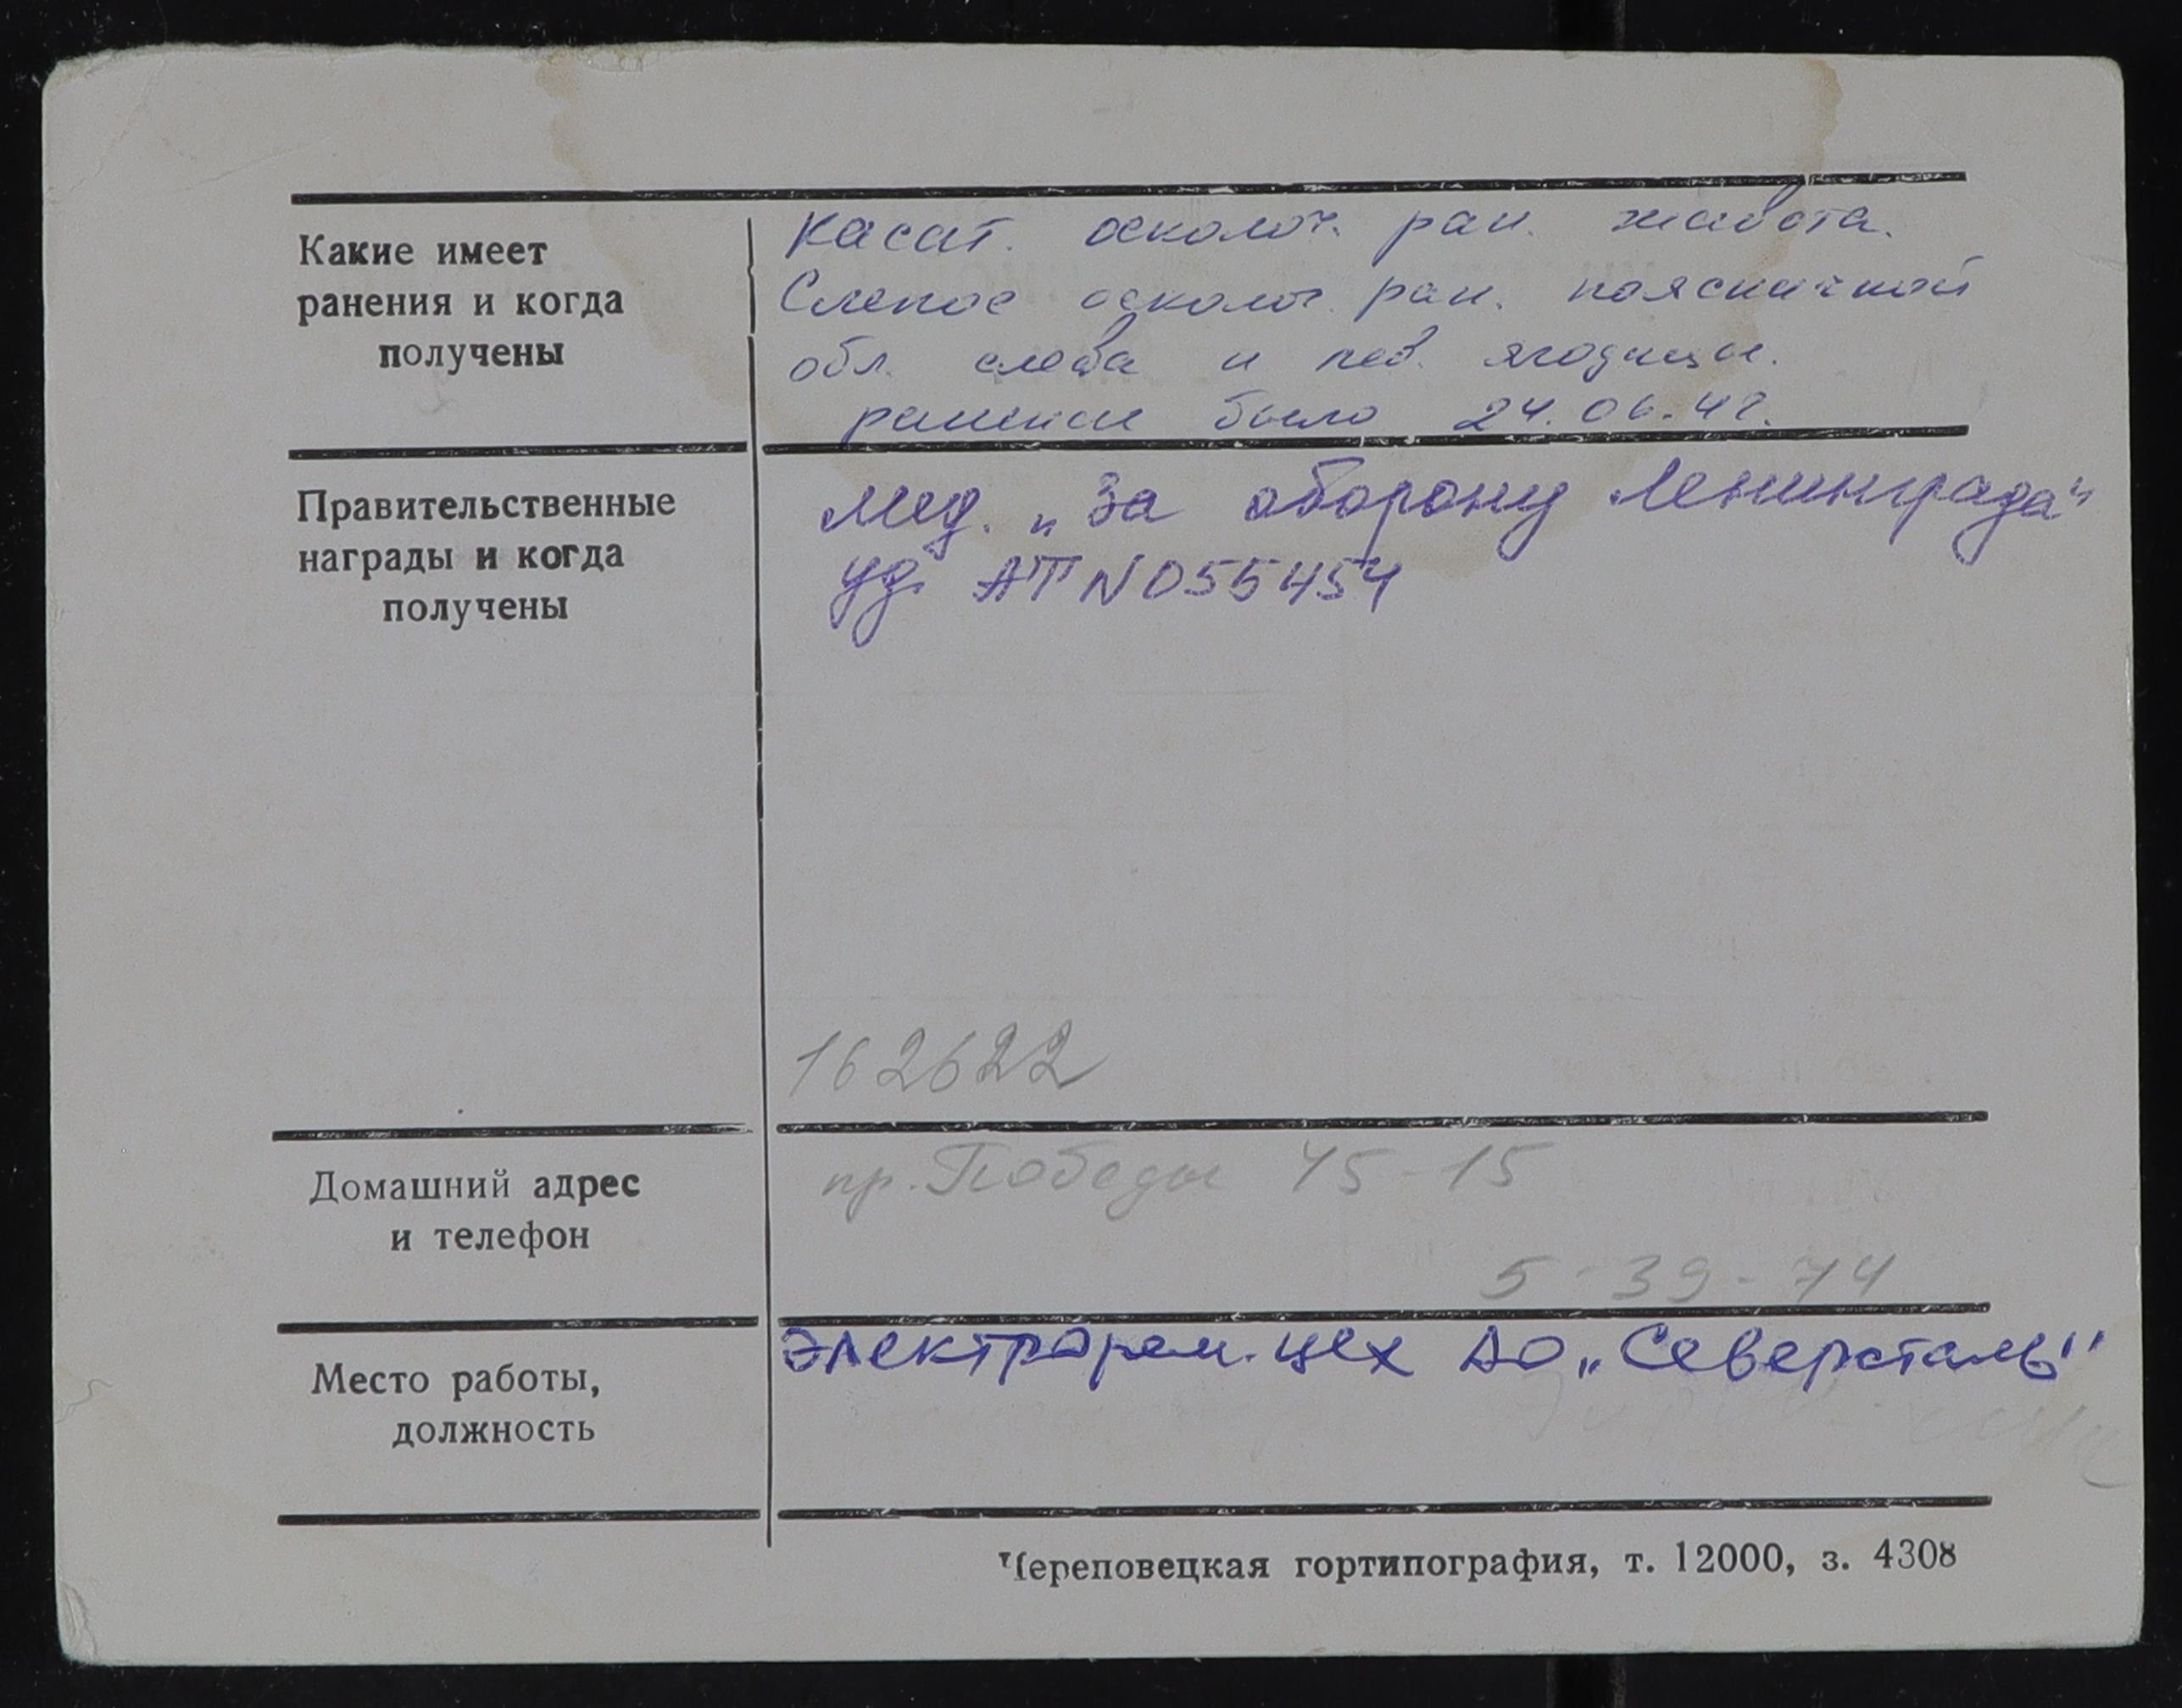 Какие имеет
ранения и когда
получены
Касат. осколоч. ран. живота.
Слепое осколоч. ран. поясничной
обл. слева и лев. ягодицы.
ранение было 24.06.42.
Правительственные
награды и когда
получены
Мед. „За оборону Ленинграда"
уд. АТ N 055454
162622
Домашний адрес
и телефон
пр. Победы 45-15
5-39-74
Место работы,
должность
Электрорем. цех АО „Северсталь"
Череповецкая гортипография, т. 12000, з. 4308